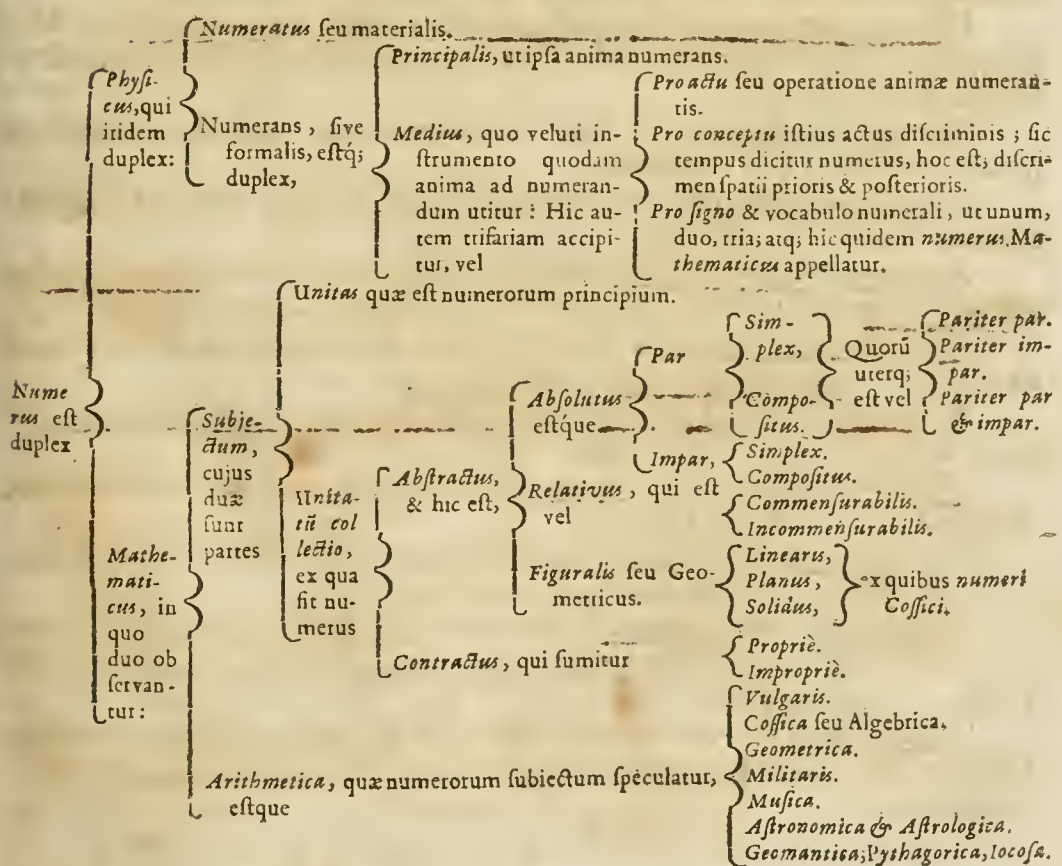 Numeratus ſeu materialis.
Phyſi-
cus, qui
itidem
duplex:
Numerans, ſive
formalis, eſtq;
duplex,
Principalis, ut ipſa anima numerans.
Medius, quo veluti in-
ſtrumento quodam
anima ad numeran-
dum utitur: Hic au-
tem trifariam accipi-
tur, vel
Pro actu ſeu operatione animæ numeran-
tis.
Pro conceptu iſtius actus diſcriminis; ſic
tempus dicitur numerus, hoc eſt, diſcri-
men ſpatii prioris & poſterioris.
Pro ſigno & vocabulo numerali, ut unum,
duo, tria; atq; hic quidem numerus Ma-
thematicus appellatur.
Nume
rus eſt
duplex
Mathe-
mati-
cus, in
quo
duo ob
ſervan-
tur:
Subje-
ctum,
cujus
duæ
ſunt
partes
Unitas quæ eſt numerorum principium.
Unita-
tū col
lectio,
ex qua
fit nu-
merus
Abſtractus,
& hic eſt,
Abſolutus
eſtque
Par
Sim-
plex,
Compo-
ſitus.
Quorū
uterq;
eſt vel
Pariter par.
Pariter im-
par.
Pariter par
& impar.
Impar,
Simplex.
Compoſitus.
Relativus, qui eſt
vel
Commenſurabilis.
Incommenſurabilis.
Figuralis ſeu Geo-
metricus.
Linearis,
Planus,
Solidus,
ex quibus numeri
Coſſici.
Contractus, qui ſumitur
Propriè.
Impropriè.
Arithmetica, quæ numerorum ſubiectum ſpeculatur,
eſtque
Vulgaris.
Coſſica ſeu Algebrica.
Geometrica.
Militaris.
Muſica.
Aſtronomica & Aſtrologica.
Geomantica, Pythagorica, Iocoſa.